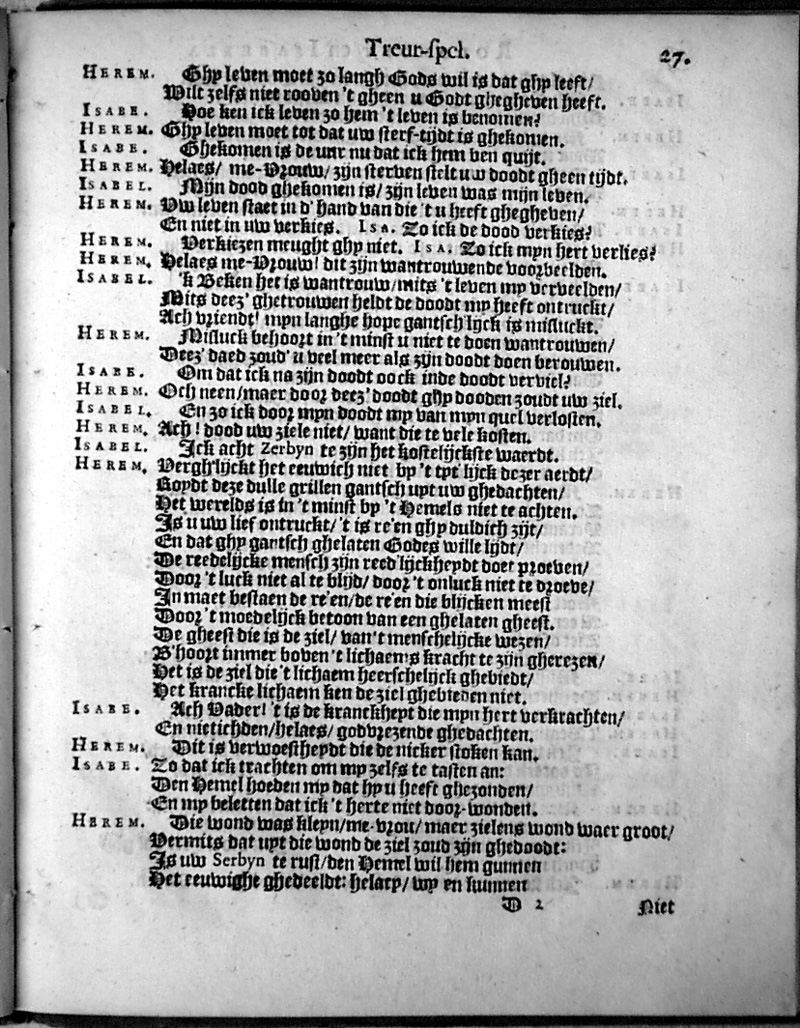 Treur-spel. 27.
HEREM. Ghy leven moet zo langh Gods wil is dat ghy leeft/
Wilt zelfs niet rooven 't gheen u Godt ghegheven heeft.
ISABE. Hoe ken ick leven zo hem 't leven is benomen?
HEREM. Ghy leven moet tot dat uw sterf-tijdt is ghekomen.
ISABE. Ghekomen is de uur nu dat ick hem ben quijt.
HEREM. Helaes/ me-Vrouw/ zijn sterven stelt uw doodt gheen tijdt.
ISABEL. Mijn dood ghekomen is/ zijn leven was mijn leven.
HEREM. Uw leven staet in d' hand van die 't u heeft ghegheven/
En niet in uw verkies. ISA. Zo ick de dood verkies?
HEREM. Verkiezen meught ghy niet. ISA. Zo ick myn hert verlies?
HEREM. Helaes me-Vrouw! dit zijn wantrouwende voorbeelden.
ISABEL. 'k Beken het is wantrouw/ mits 't leven my verveelden/
Mits deez' ghetrouwen heldt de doodt my heeft ontruckt/
Ach vriendt! myn langhe hope gantsch lijck is misluckt.
HEREM. Misluck behoort in 't minst u niet te doen wantrouwen/
Deez' daed zoud' u veel meer als zijn doodt doen berouwen.
ISABE. Om dat ick na zijn doodt oock inde doodt verviel?
HEREM. Och neen/ maer door deez' doodt ghy dooden zoudt uw ziel.
ISABEL. En zo ick door myn doodt my van myn quel verlosten.
HEREM. Ach! dood uw ziele niet/ want die te vele kosten.
ISABEL. Ick acht Zerbyn te zijn het kostelijckste waerdt.
HEREM. Vergh'lijckt het eeuwich niet by 't tyt'lijck dezer aerdt/
Roydt deze dulle grillen gantsch uyt uw ghedachten/
Het werelds is in 't minst by 't Hemels niet te achten.
Is u uw lief ontruckt/ 't is re'en ghy duldich zijt/
En dat ghy gantsch ghelaten Godes wille lijdt/
De reedelijcke mensch zijn reed'lijckheydt doet proeven/
Door 't luck niet al te blijd/ door 't onluck niet te droeve/
In maet bestaen de re'en/ de re'en die blijcken meest
Door 't moedelijck betoon van een ghelaten gheest.
De gheest die is de ziel/ van 't menschelijcke wezen/
B'hoort immer boven 't lichaems kracht te zijn gherezen/
Het is de ziel die 't lichaem heerschelijck ghebiedt/
Het krancke lichaem ken de ziel ghebieden niet.
ISABE. Ach Vader! 't is de kranckheyt die myn hert verkrachten/
En nietichden/ helaes/ godvrezende ghedachten.
HEREM. Dit is verwoestheydt die de nicker stoken kan.
ISABE. Zo dat ick trachten om my zelfs te tasten an:
Den Hemel hoeden my dat hy u heeft ghezonden/
En my beletten dat ick 't herte niet door-wonden.
HEREM. Die wond was kleyn/ me-vrou/ maer zielens wond waer groot/
Vermits dat uyt die wond de ziel zoud zijn ghedoodt:
Is uw Serbyn te rust/ den Hemel wil hem gunnen
Het eeuwighe ghedeeldt: helacy/ wy en kunnen
D 2 Niet